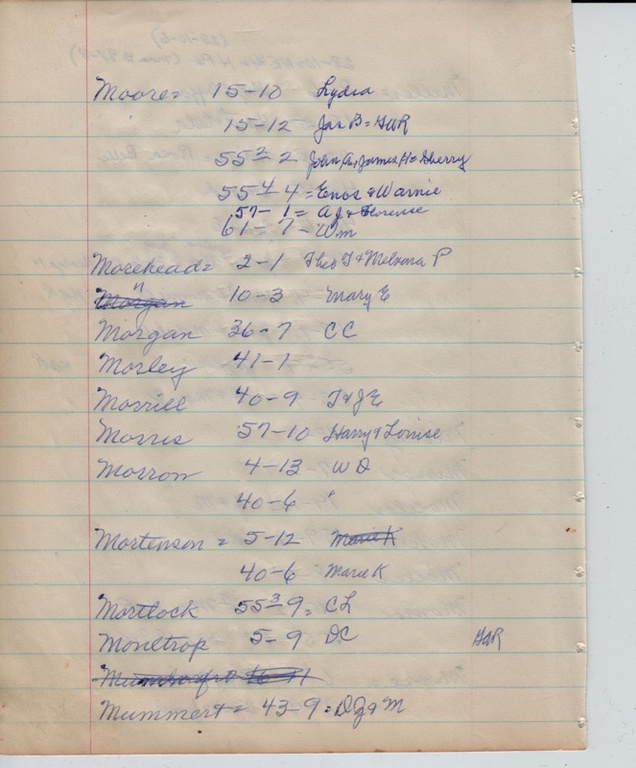 Moore = 15-10 Lydia
15-12 Jas B = GAR
55² 2 John A, James H = Sherry
55 4 4 = Enos & Warnie
57-1 = A J & Florense
61-7 - Wm
Morehead = 2-1 Theo T & Melvona P
Morgan 10-3 Mary E
Morgan 36-7 CC
Morley 41-1
Morrill 40-9 T & J E
Morris 57-10 Harry & Louise
Morron 4-13 W D
40-6 "
Mortenson = 5-12 Marie K
40-6 Marie K
Mortlock 55³ 9 = CL
Moultrop 5-9 DC GAR
Mummert = 43-9 = D J & M